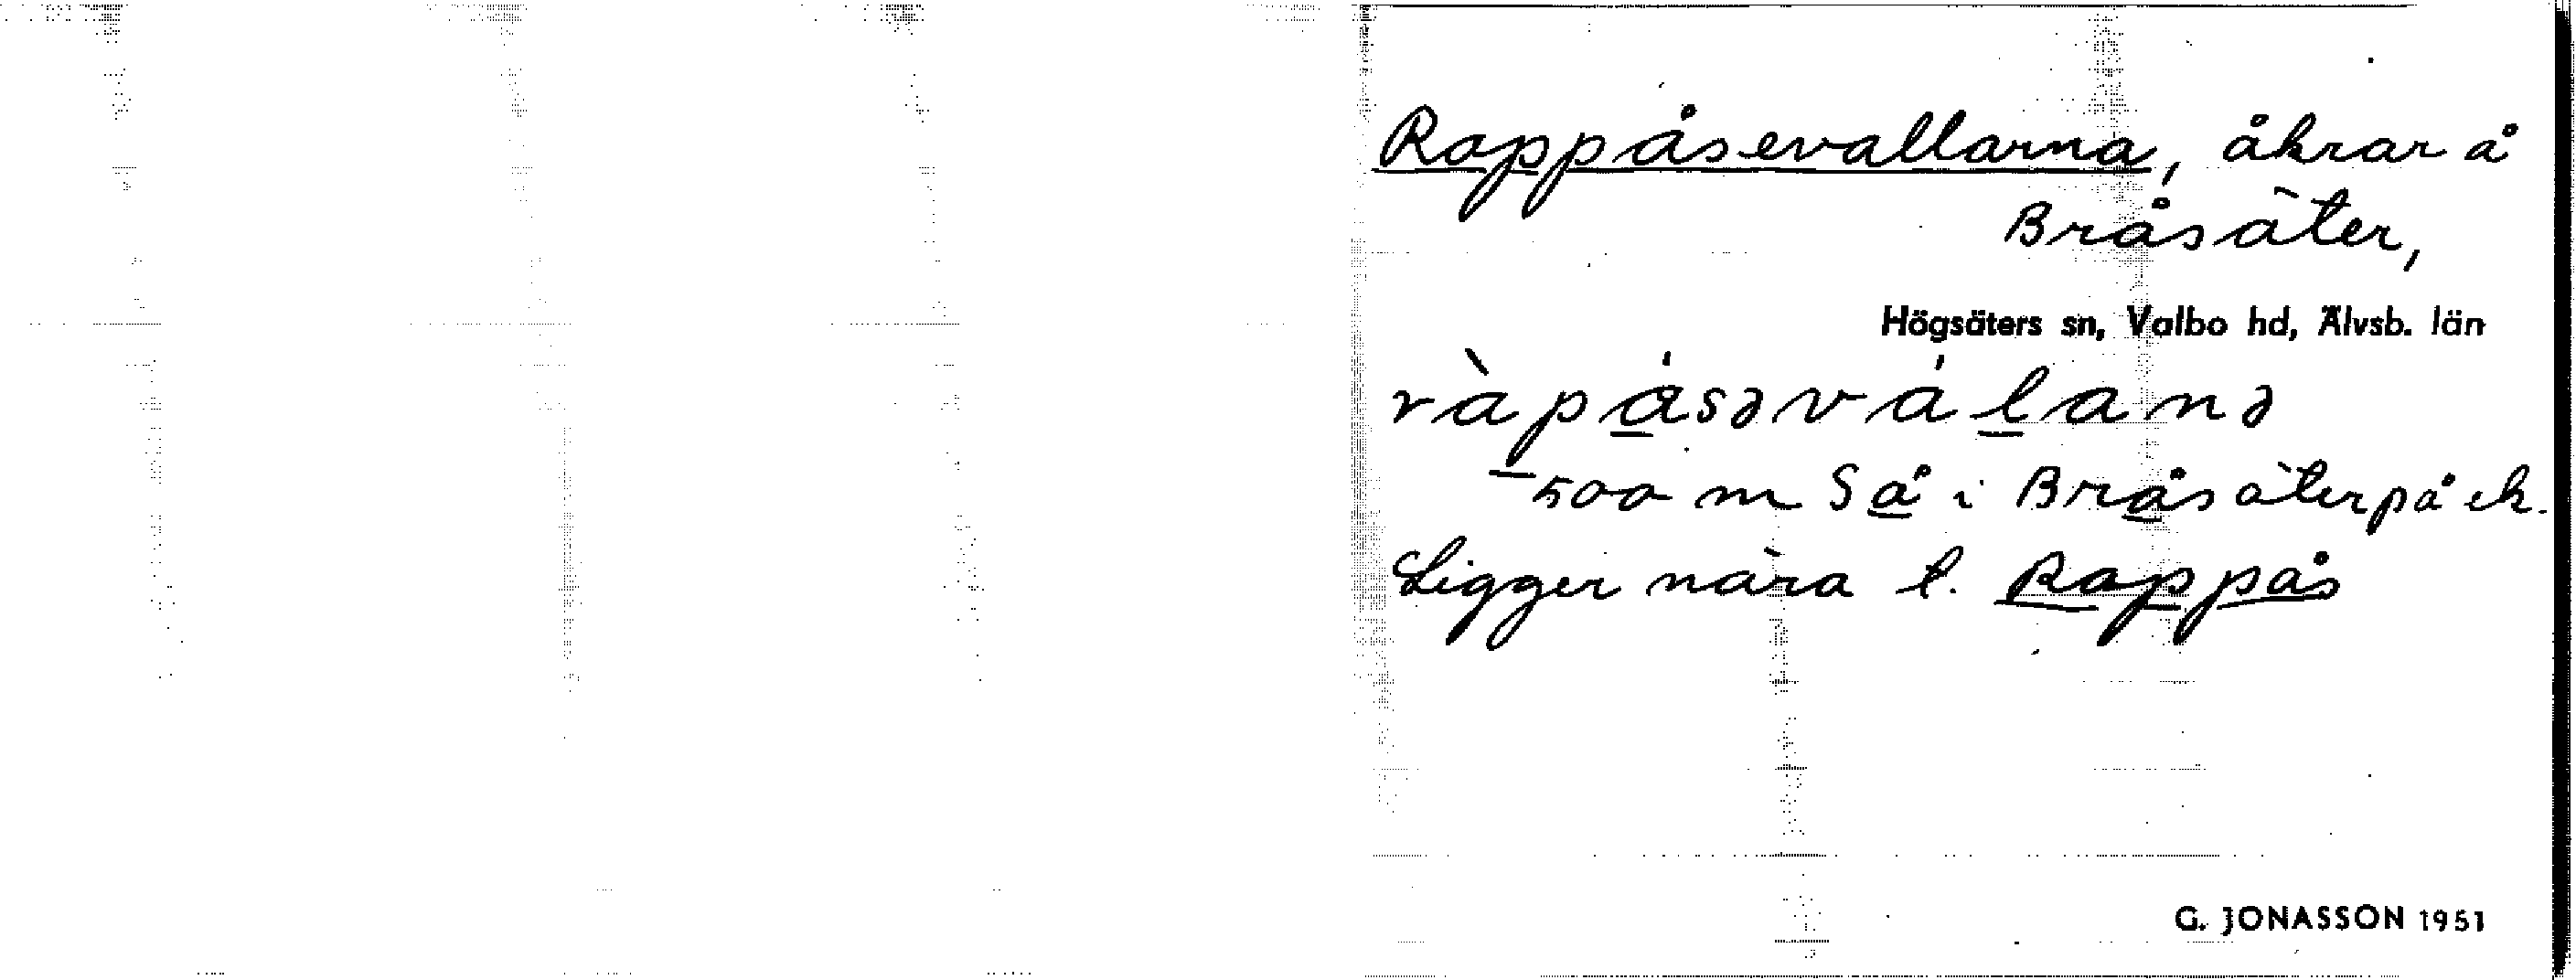 Rappåsevallarna, åkrar å
Bråsäter,
Högsäters sn, Valbo hd, Älvsb. län
500 m S å i Bråsäter på ek.
Ligger nära l. Rappås
G. JONASSON 1951